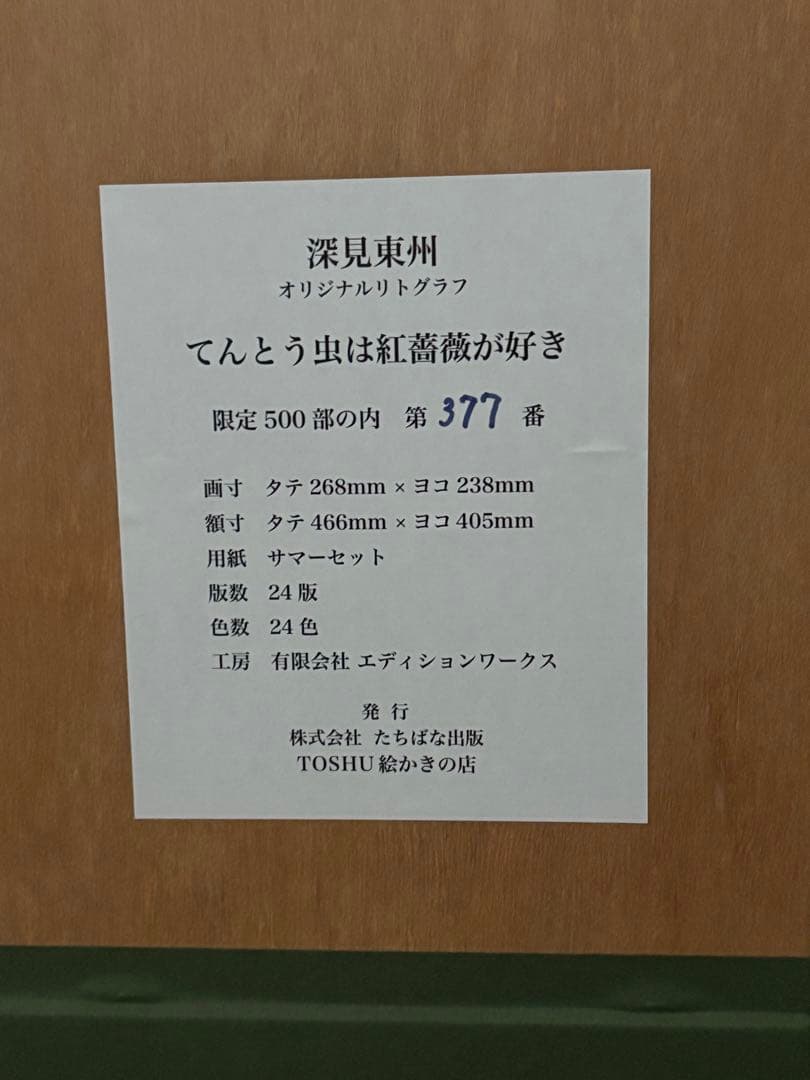 深見東州
オリジナルリトグラフ
てんとう虫は紅薔薇が好き
限定500部の内 第 377 番
画寸 タテ268mm×ヨコ238mm
額寸 タテ466mm×ヨコ405mm
用紙 サマーセット
版数 24版
色数 24色
工房 有限会社 エディションワークス
発 行
株式会社 たちばな出版
TOSHU絵かきの店